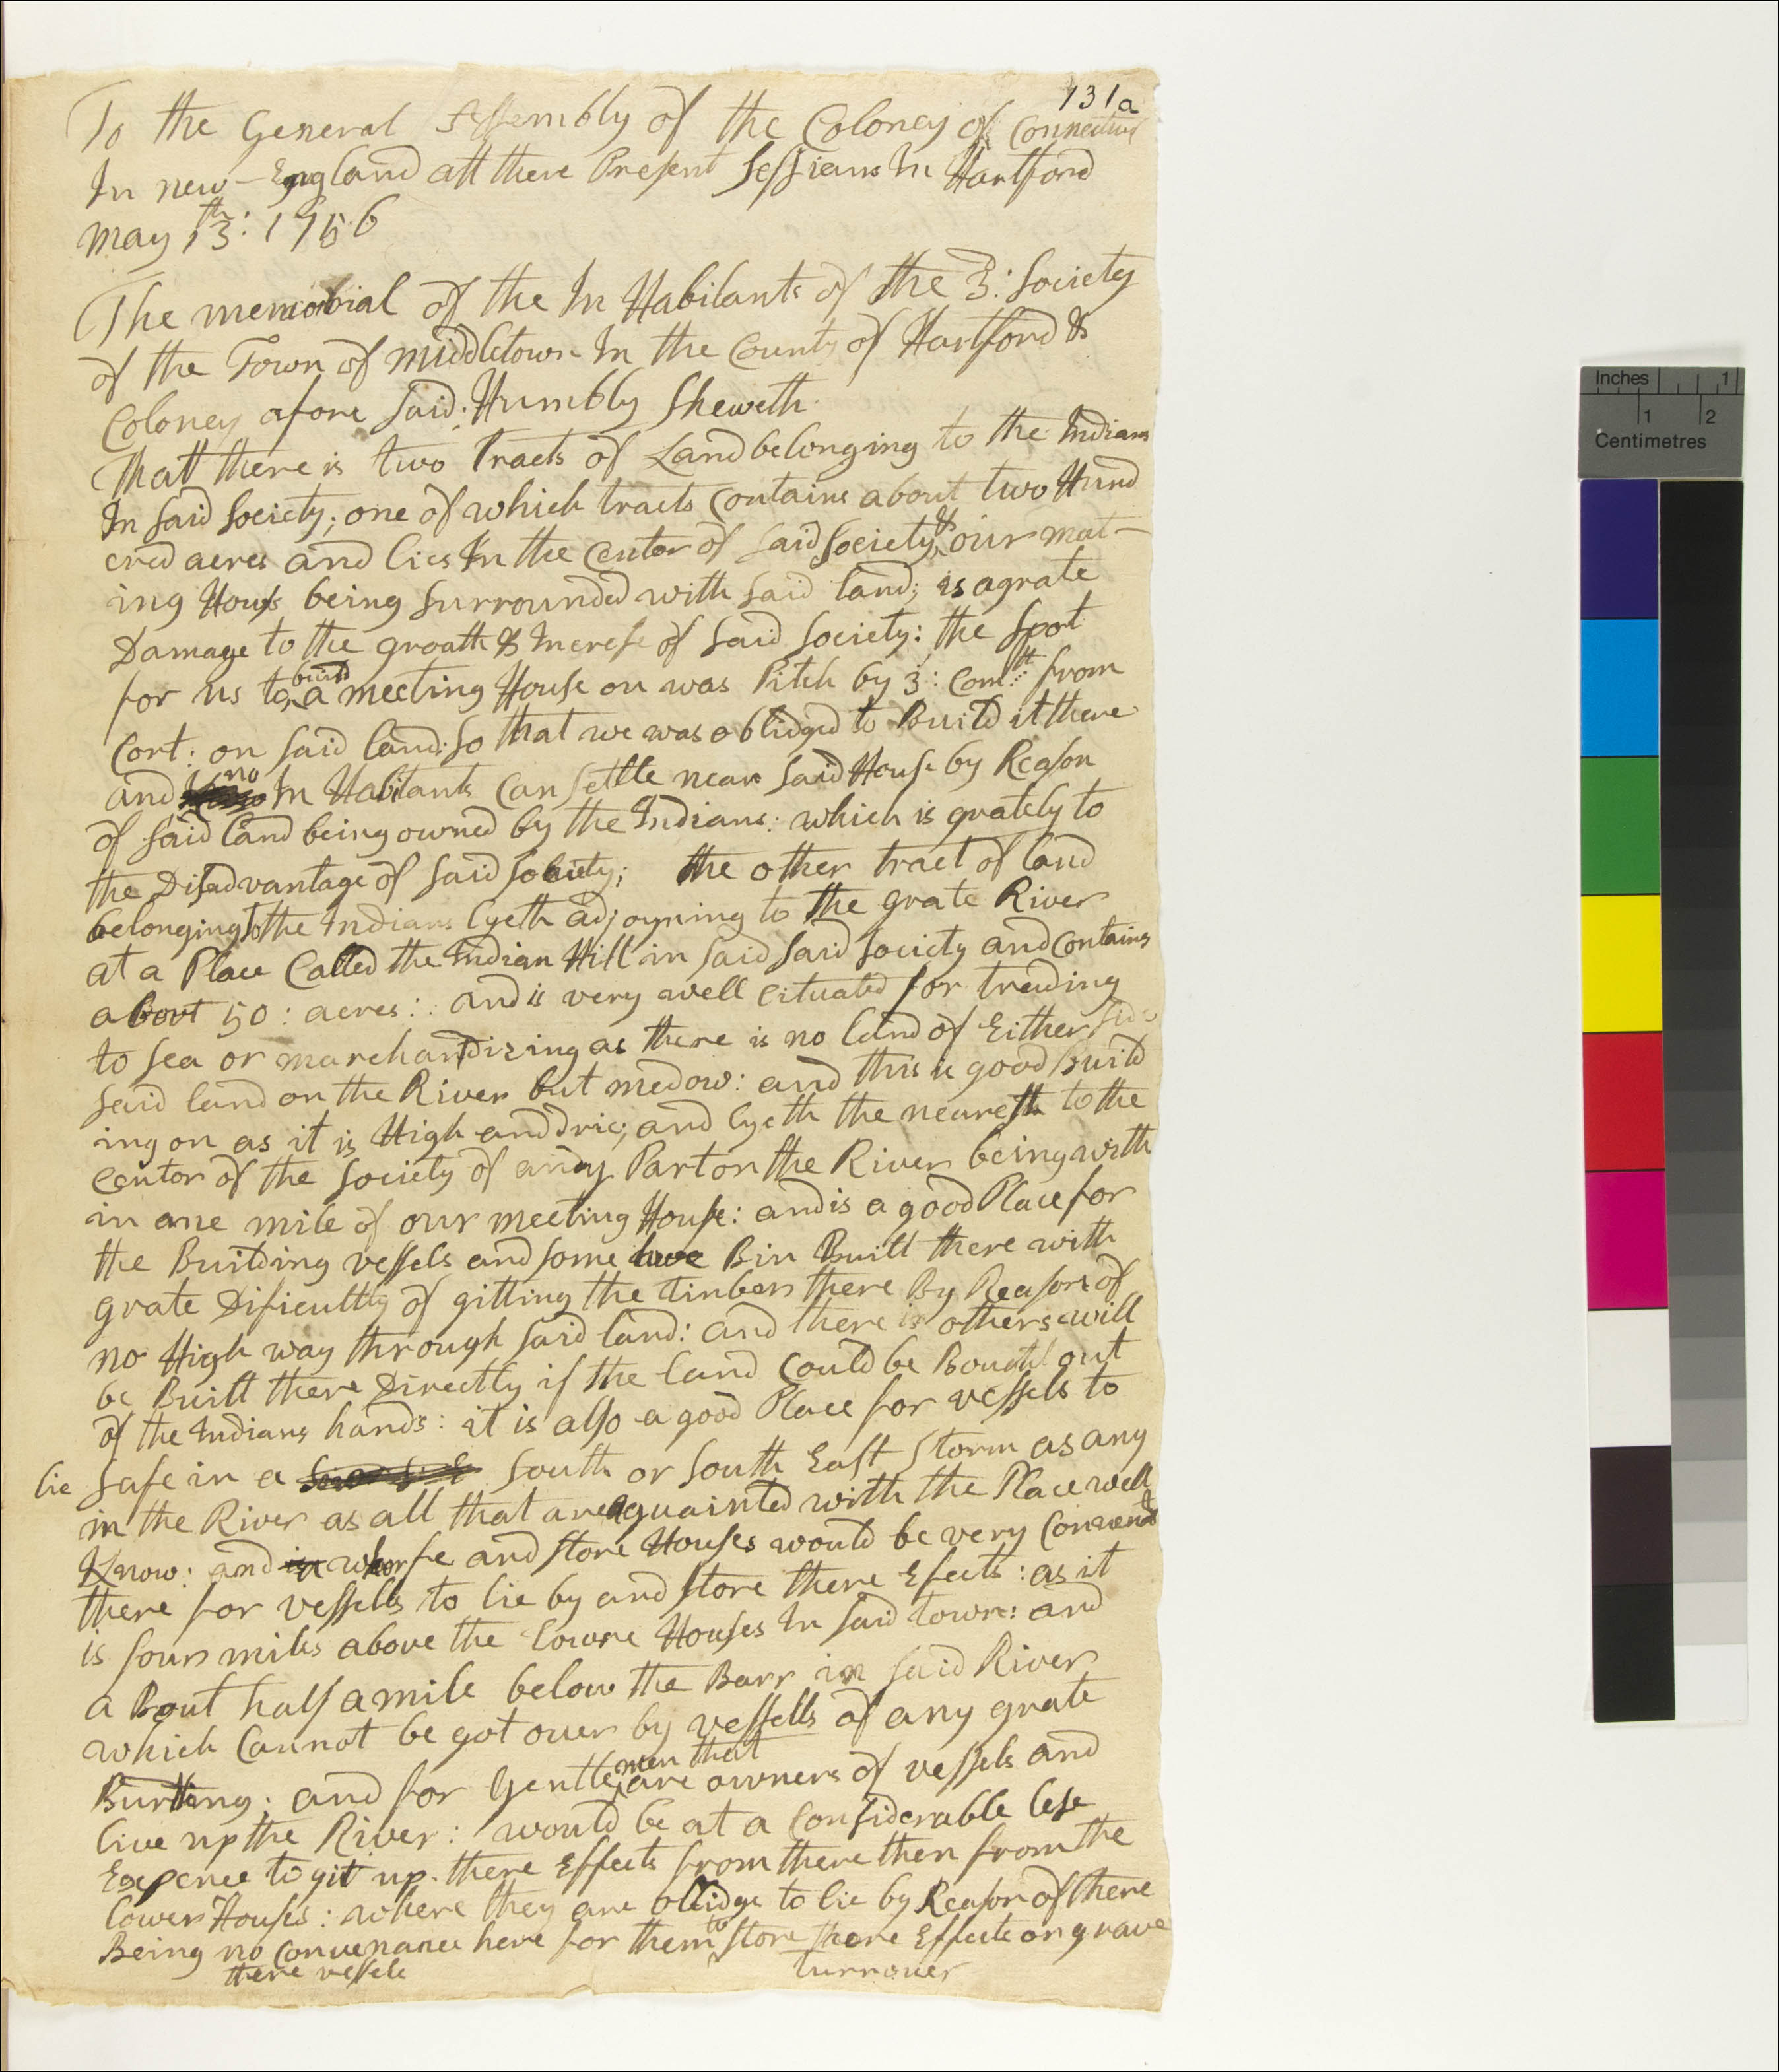 131a
To the General Assembly of the Coloney of Connecticut
In new-England att there Present Sessians In Hartford
may 13th: 1756
The memorial of the In Habitants of the 3: Society
of the Town of middletown In the County of Hartford &
Coloney afore Said; Humbly Sheweth
That there is two Tracts of Land belonging to the Indians
In Said Society; one of which tracts Contains about two Hund
ered acres and lies In the Centor of Said Society & our mat-
ing Hous being Surrounded with Said land; is a grate
Damage to the groath & Increse of Said Society: the Spot
for us to build a meeting House on was Pitch by 3: Comtt from
Cort: on Said land: So that we was oblidged to Build it there
and no In Habitants Can Settle near Said House by Reason
of Said Land being owned by the Indians: which is grately to
the Disadvantage of Said Society; the other tract of land
belonging to the Indians lyeth adjoyning to the grate River
at a Place Called the Indian Hill in Said Said Society and Contains
about 50: acres: and is very well Cituated for treading
to Sea or marchandizing as there is no land of Either Side
Said land on the River but medow: and this is good Build
ing on as it is High and drie; and lyeth the nearesth to the
Centor of the Society of andy Part on the River being with
in one mile of our meeting House: and is a good Place for
the Building vessels and some have Bin Built there with
grate Dificultty of gitting the timber there By Reason of
no High way through Said land: and there is others will
be Built there Directly if the land Could be Bought out
of the Indians hands: it is also a good Place for vessels to
lie Safe in a South or South East Storm as any
in the River as all that are aquainted with the Place well
Know: and wharfe and Store Houses would be very Convenant
there for vessells to lie by and Store there Efects: as it
is four miles above the lowre Houses In Said town: and
a Bout half a mile below the Barr in Said River
which Cannot be got over by vessells of any grate
Burtting; and for Gentlemen that are owners of vessels and
live up the River: would be at a Considerable lese
Expence to git up there Effects from there then from the
lower Houses: where they are oblidge to lie by Reason of there
Being no Convenance here for them to Store there Effects or grave
there vessels
turnover
Inches 1
1 2
Centimetres